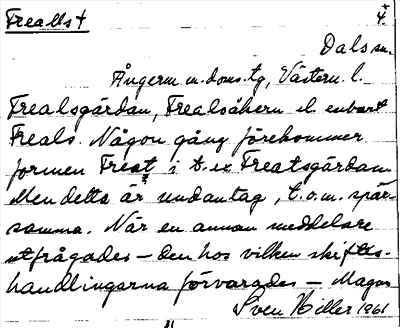 Frealls † 4.
Dals sn.
Ångerm n. doms. tg, Västern. l.
Frealsgårdan, Frealsåkern el. enbart
Freals. Någon gång förekommer
formen Freat i t. ex Freatsgårdan.
Men detta är undantag, t.o.m. spar-
samma. När en annan meddelare
utfrågades – den hos vilken skiftes-
handlingarna förvarades – Magos
Sven Hiller 1961